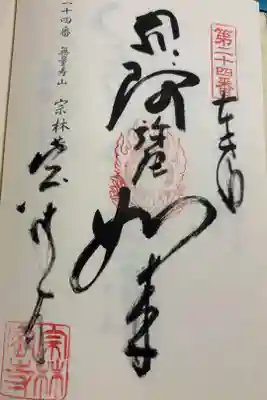 第二十四番
奉拝
阿弥陀
如来
宗林寺
二十四番 無量寿山 宗林
宗林寺